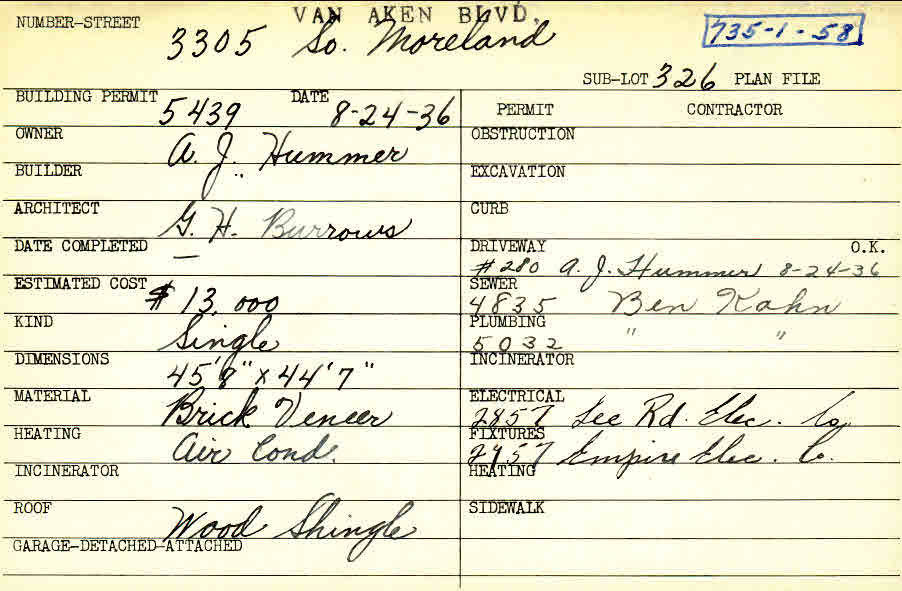 VAN AKEN BLVD.
NUMBER-STREET 3305 So. Moreland 735-1-58
SUB-LOT 326 PLAN FILE
BUILDING PERMIT 5439 DATE 8-24-36
PERMIT CONTRACTOR
OWNER A. J. Hummer
OBSTRUCTION
BUILDER "
EXCAVATION
ARCHITECT G. H. Burrows
CURB
DATE COMPLETED —
DRIVEWAY O.K.
#280 A. J. Hummer 8-24-36
ESTIMATED COST $13,000
SEWER
4835 Ben Kahn
KIND Single
PLUMBING
5032 " "
DIMENSIONS 45'8" x 44'7"
INCINERATOR
MATERIAL Brick Veneer
ELECTRICAL
2857 Lee Rd. Elec. Co.
HEATING Air Cond.
FIXTURES
Empire Elec. Co.
INCINERATOR
HEATING
ROOF Wood Shingle
SIDEWALK
GARAGE-DETACHED-ATTACHED